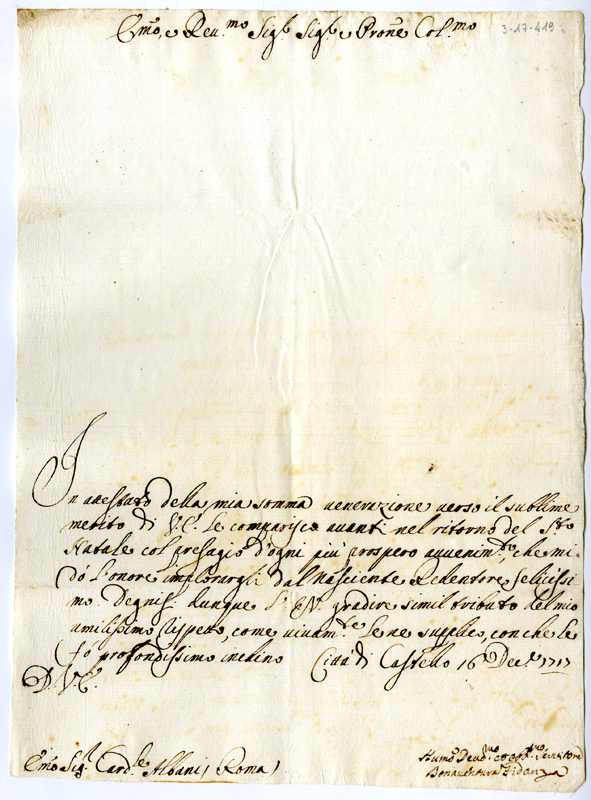 Emo, e Reu.mo Sig.r Sig.r e Prone Col.mo
3-17-419
In attestato della mia somma uenerazione uerso il sublime
merito di V.E. le comparisco auanti nel ritorno del S.to
Natale col presagio d'ogni più prospero auuenim.to, che mi
dò l'onore implorargli dal nascente Redentore felicissi
mo. Degnisi dunque l'E.V. gradire simil tributo del mio
umilissimo rispetto, come uiuam.te le ne supplico, con che le
fò profondissimo inchino Città di Castello 16 Dec.e 1717
D. V.E.
Emo Sig.r Card.le Albani, Roma)
Humo Deuo.mo et Obb.mo Seruitore
Bonauentura Fidanza